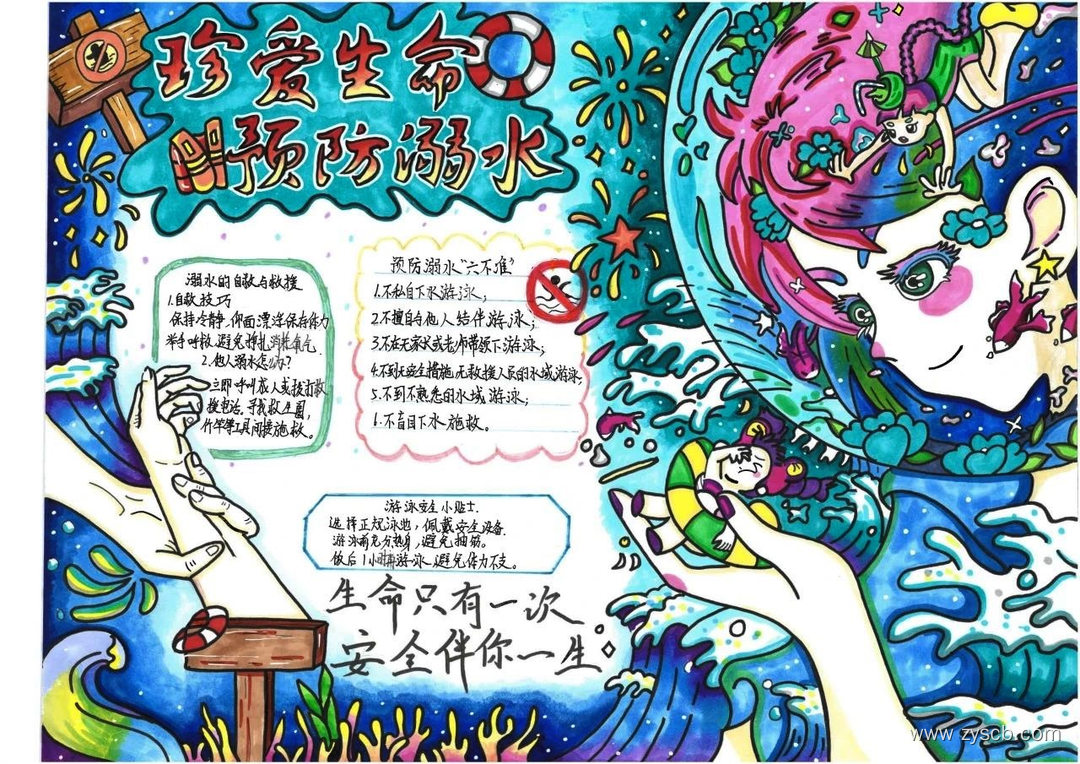 珍爱生命
预防溺水
溺水的自救与救援
1.自救技巧
保持冷静,仰面漂浮保存体力
举手呼救,避免挣扎消耗氧气.
2.他人溺水怎么办?
立即呼叫成人或拨打救
援电话,寻找救生圈,
竹竿等工具间接施救。
预防溺水"六不准"
1.不私自下水游泳;
2.不擅自与他人结伴游泳;
3.不在无家长或老师带领下游泳;
4.不到无安全措施,无救援人员的水域游泳;
5.不到不熟悉的水域游泳;
6.不盲目下水施救。
游泳安全小贴士.
选择正规泳池,佩戴安全设备.
游泳前充分热身,避免抽筋。
饭后1小时再游泳,避免体力不支。
生命只有一次
安全伴你一生
www.zyscb.com